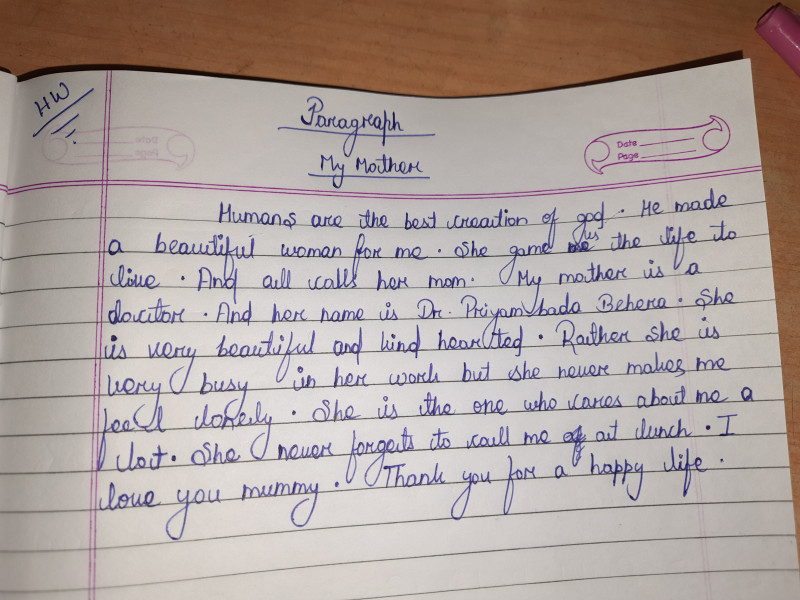 HW
Paragraph
Date
Page
My Mother
Humans are the best creaction of god. He made
a beautiful woman for me. She game us the life to
live. And all calls her mom. My mother is a
doctor. And her name is Dr. Priyambada Behera. She
is very beautiful and kind hearted. Rather she is
very busy in her work but she never makes me
feel lonely. She is the one who cares about me a
lot. She never forgets to call me at lunch. I
love you mummy. Thank you for a happy life.